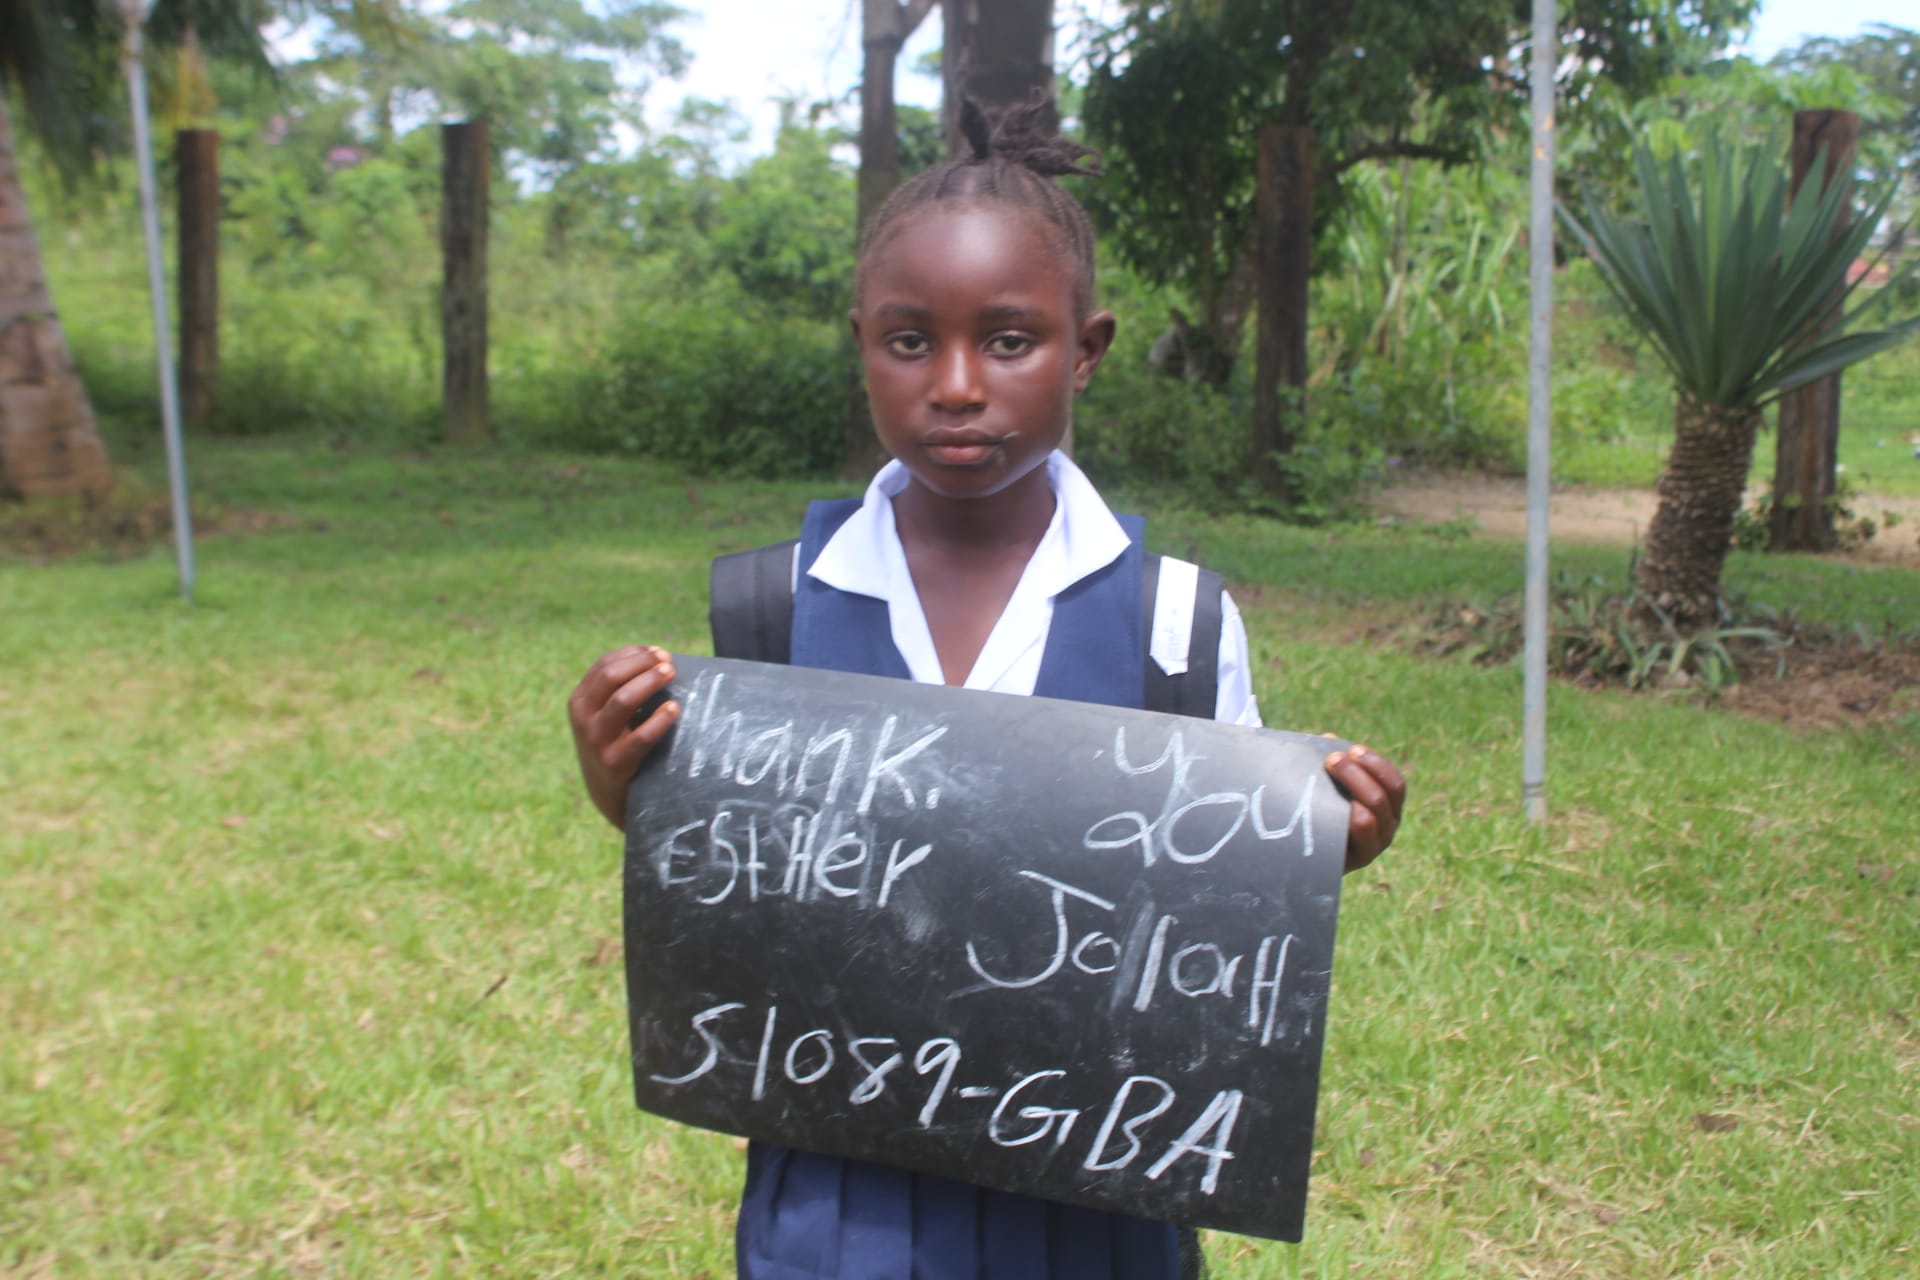 Thank. You
EStHer JollaH
51089-GBA